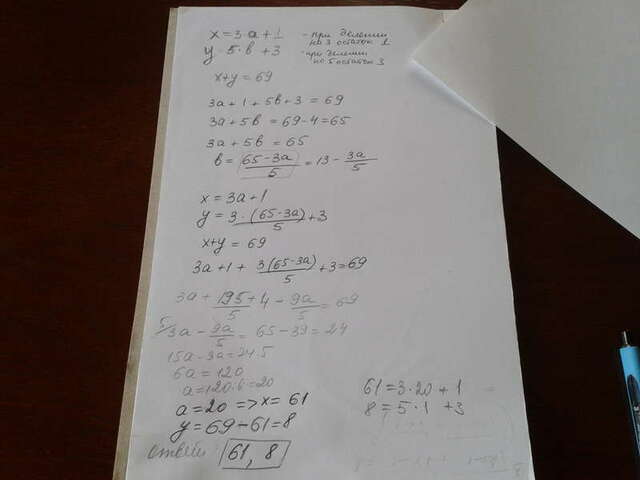 x = 3·a + 1 - при делении на 3 остаток 1
y = 5·в + 3 - при делении на 5 остаток 3
x+y = 69
3a + 1 + 5в + 3 = 69
3a + 5в = 69 - 4 = 65
3a + 5в = 65
в = (65 - 3a)/5 = 13 - 3a/5
x = 3a + 1
y = 3·(65-3a)/5 + 3
x+y = 69
3a + 1 + 3(65-3a)/5 + 3 = 69
3a + 195/5 + 4 - 9a/5 = 69
5/3a - 9a/5 = 65 - 39 = 24
15a - 3a = 24·5
6a = 120
a = 120:6 = 20
a = 20 => x = 61
y = 69 - 61 = 8
Ответ: 61, 8
61 = 3·20 + 1
8 = 5·1 + 3